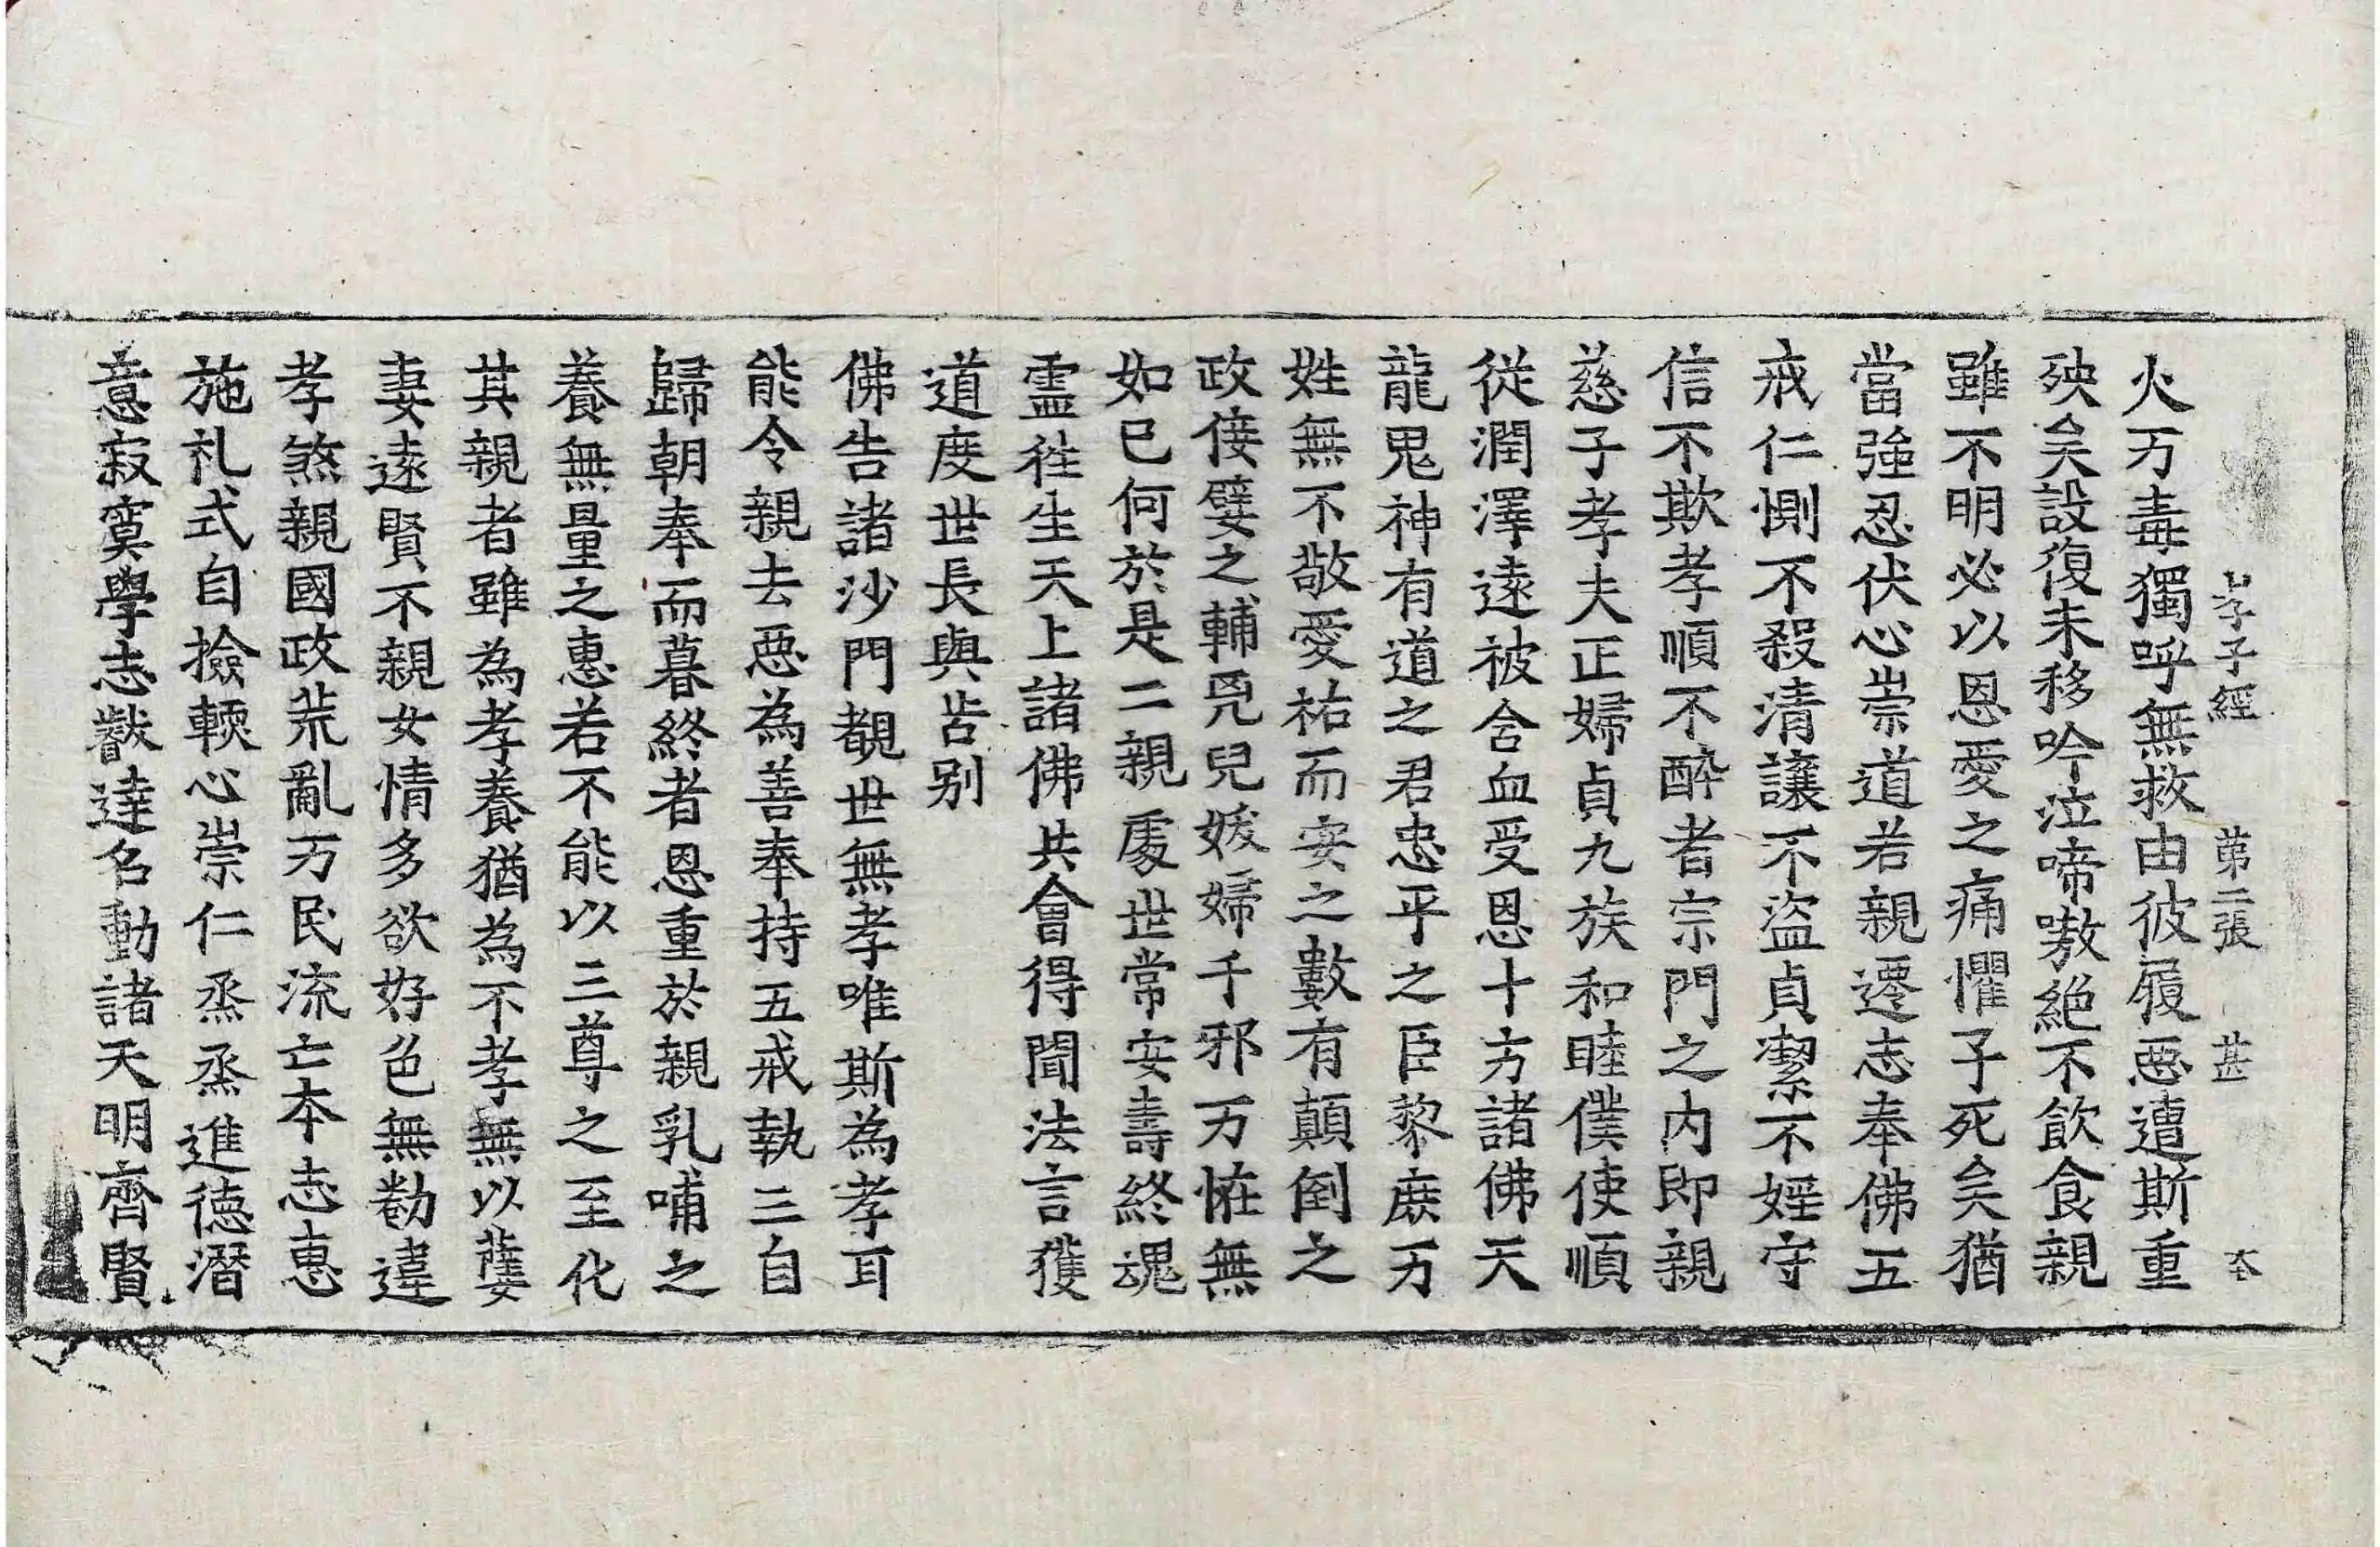 孝子經　第二張　甚
火万毒獨呼無救由彼履惡遭斯重
殃矣設復未移吟泣啼嗷絕不飲食親
雖不明必以恩愛之痛懼子死矣猶
當強忍伏心崇道若親遷志奉佛五
戒仁惻不殺清讓不盜貞潔不婬守
信不欺孝順不醉者宗門之內即親
慈子孝夫正婦貞九族和睦僕使順
從潤澤遠被含血受恩十方諸佛天
龍鬼神有道之君忠平之臣黎庶万
姓無不敬愛祐而安之數有顛倒之
政佞嬖之輔兇兒媛婦千邪万恠無
如已何於是二親處世常安壽終魂
靈往生天上諸佛共會得聞法言獲
道度世長與苦別
佛告諸沙門覩世無孝唯斯為孝耳
能令親去惡為善奉持五戒執三自
歸朝奉而暮終者恩重於親乳哺之
養無量之惠若不能以三尊之至化
其親者雖為孝養猶為不孝無以孽
妻遠賢不親女情多欲好色無勌違
孝煞親國政荒亂万民流亡本志惠
施礼式自撿輭心崇仁烝烝進德潛
意寂寞學志叡達名動諸天明齊賢